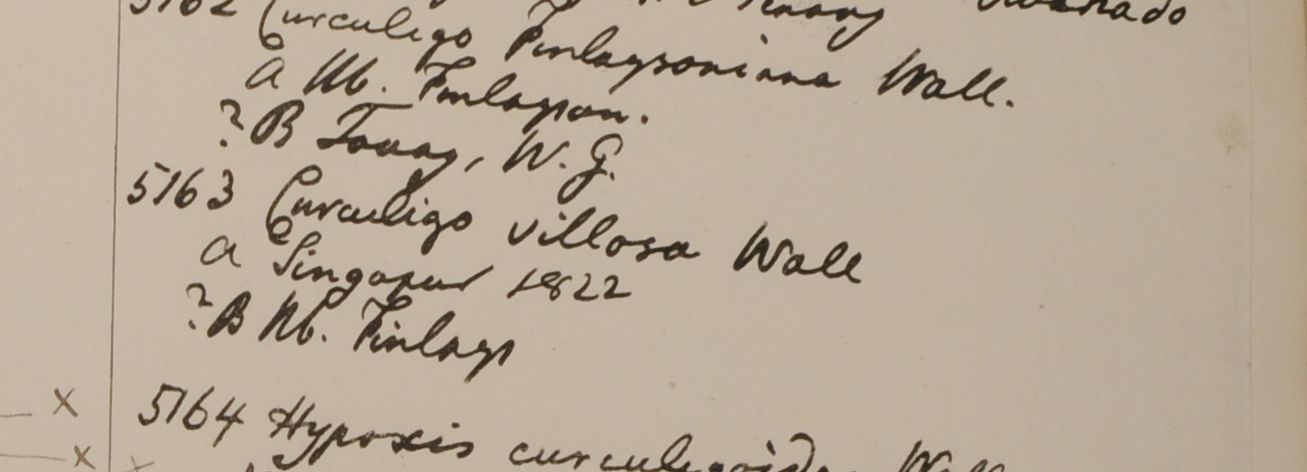 5162 Curculigo Finlaysoniana Wall.
a Hb. Finlayson.
? B Tavoy, W. G.
5163 Curculigo villosa Wall
a Singapur 1822
? B Hb. Finlays
5164 Hypoxis curculigoides Wall